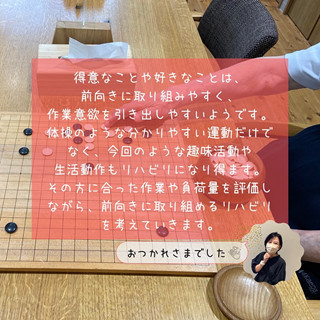 得意なことや好きなことは、
前向きに取り組みやすく、
作業意欲を引き出しやすいようです。
体操のような分かりやすい運動だけで
なく、今回のような趣味活動や
生活動作もリハビリになり得ます。
その方に合った作業や負荷量を評価し
ながら、前向きに取り組めるリハビリ
を考えていきます。
おつかれさまでした